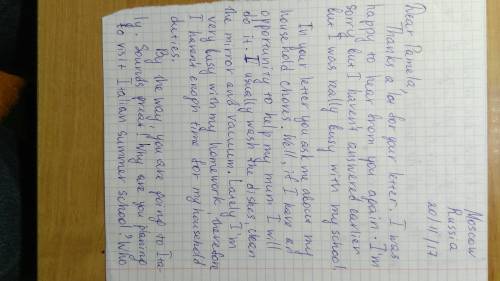 Moscow
Russia
20/11/17
Dear Pamela,
Thanks a lot for your letter. I was
happy to hear from you again. I'm
sorry but I haven't answered earlier
but I was really busy with my school.
In your letter you ask me about my
household chores. Well, if I have an
opportunity to help my mum I will
do it. I usually wash the dishes, clean
the mirror and vacuum. Lately I'm
very busy with my homework therefore
I havent enoph time for my household
duties.
By the way, you are going to Ita-
ly. Sounds great! Why are you planing
to visit Italian summer school? Who